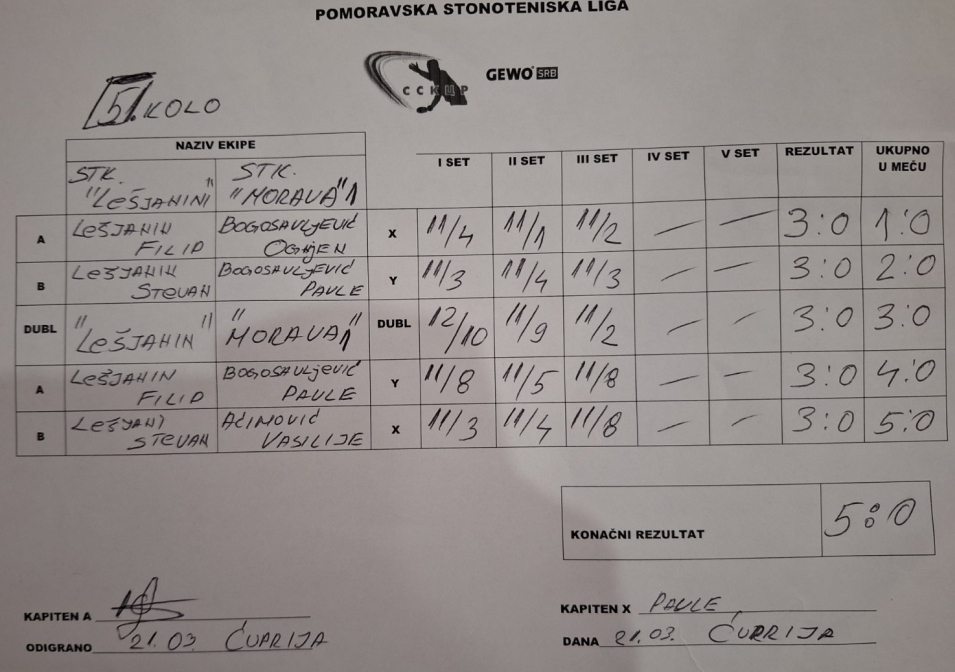 POMORAVSKA STONOTENISKA LIGA
CCKUP GEWO SRB
5. KOLO
NAZIV EKIPE
STK. "LEŠJANINI" STK. "MORAVA" 1 I SET II SET III SET IV SET V SET REZULTAT UKUPNO U MEČU
A LEŠJANIN FILIP BOGOSAVLJEVIĆ OGNJEN X 11/4 11/1 11/2 — — 3:0 1:0
B LEŠJANIN STEVAN BOGOSAVLJEVIĆ PAVLE Y 11/3 11/4 11/3 — — 3:0 2:0
DUBL "LEŠJANIN" "MORAVA 1" DUBL 12/10 11/9 11/2 — — 3:0 3:0
A LEŠJANIN FILIP BOGOSAVLJEVIĆ PAVLE Y 11/8 11/5 11/8 — — 3:0 4:0
B LEŠJANI STEVAN AĆIMOVIĆ VASILIJE X 11/3 11/4 11/8 — — 3:0 5:0
KONAČNI REZULTAT 5:0
KAPITEN A KAPITEN X PAVLE
ODIGRANO 21.03. ĆUPRIJA DANA 21.03. ĆUPRIJA